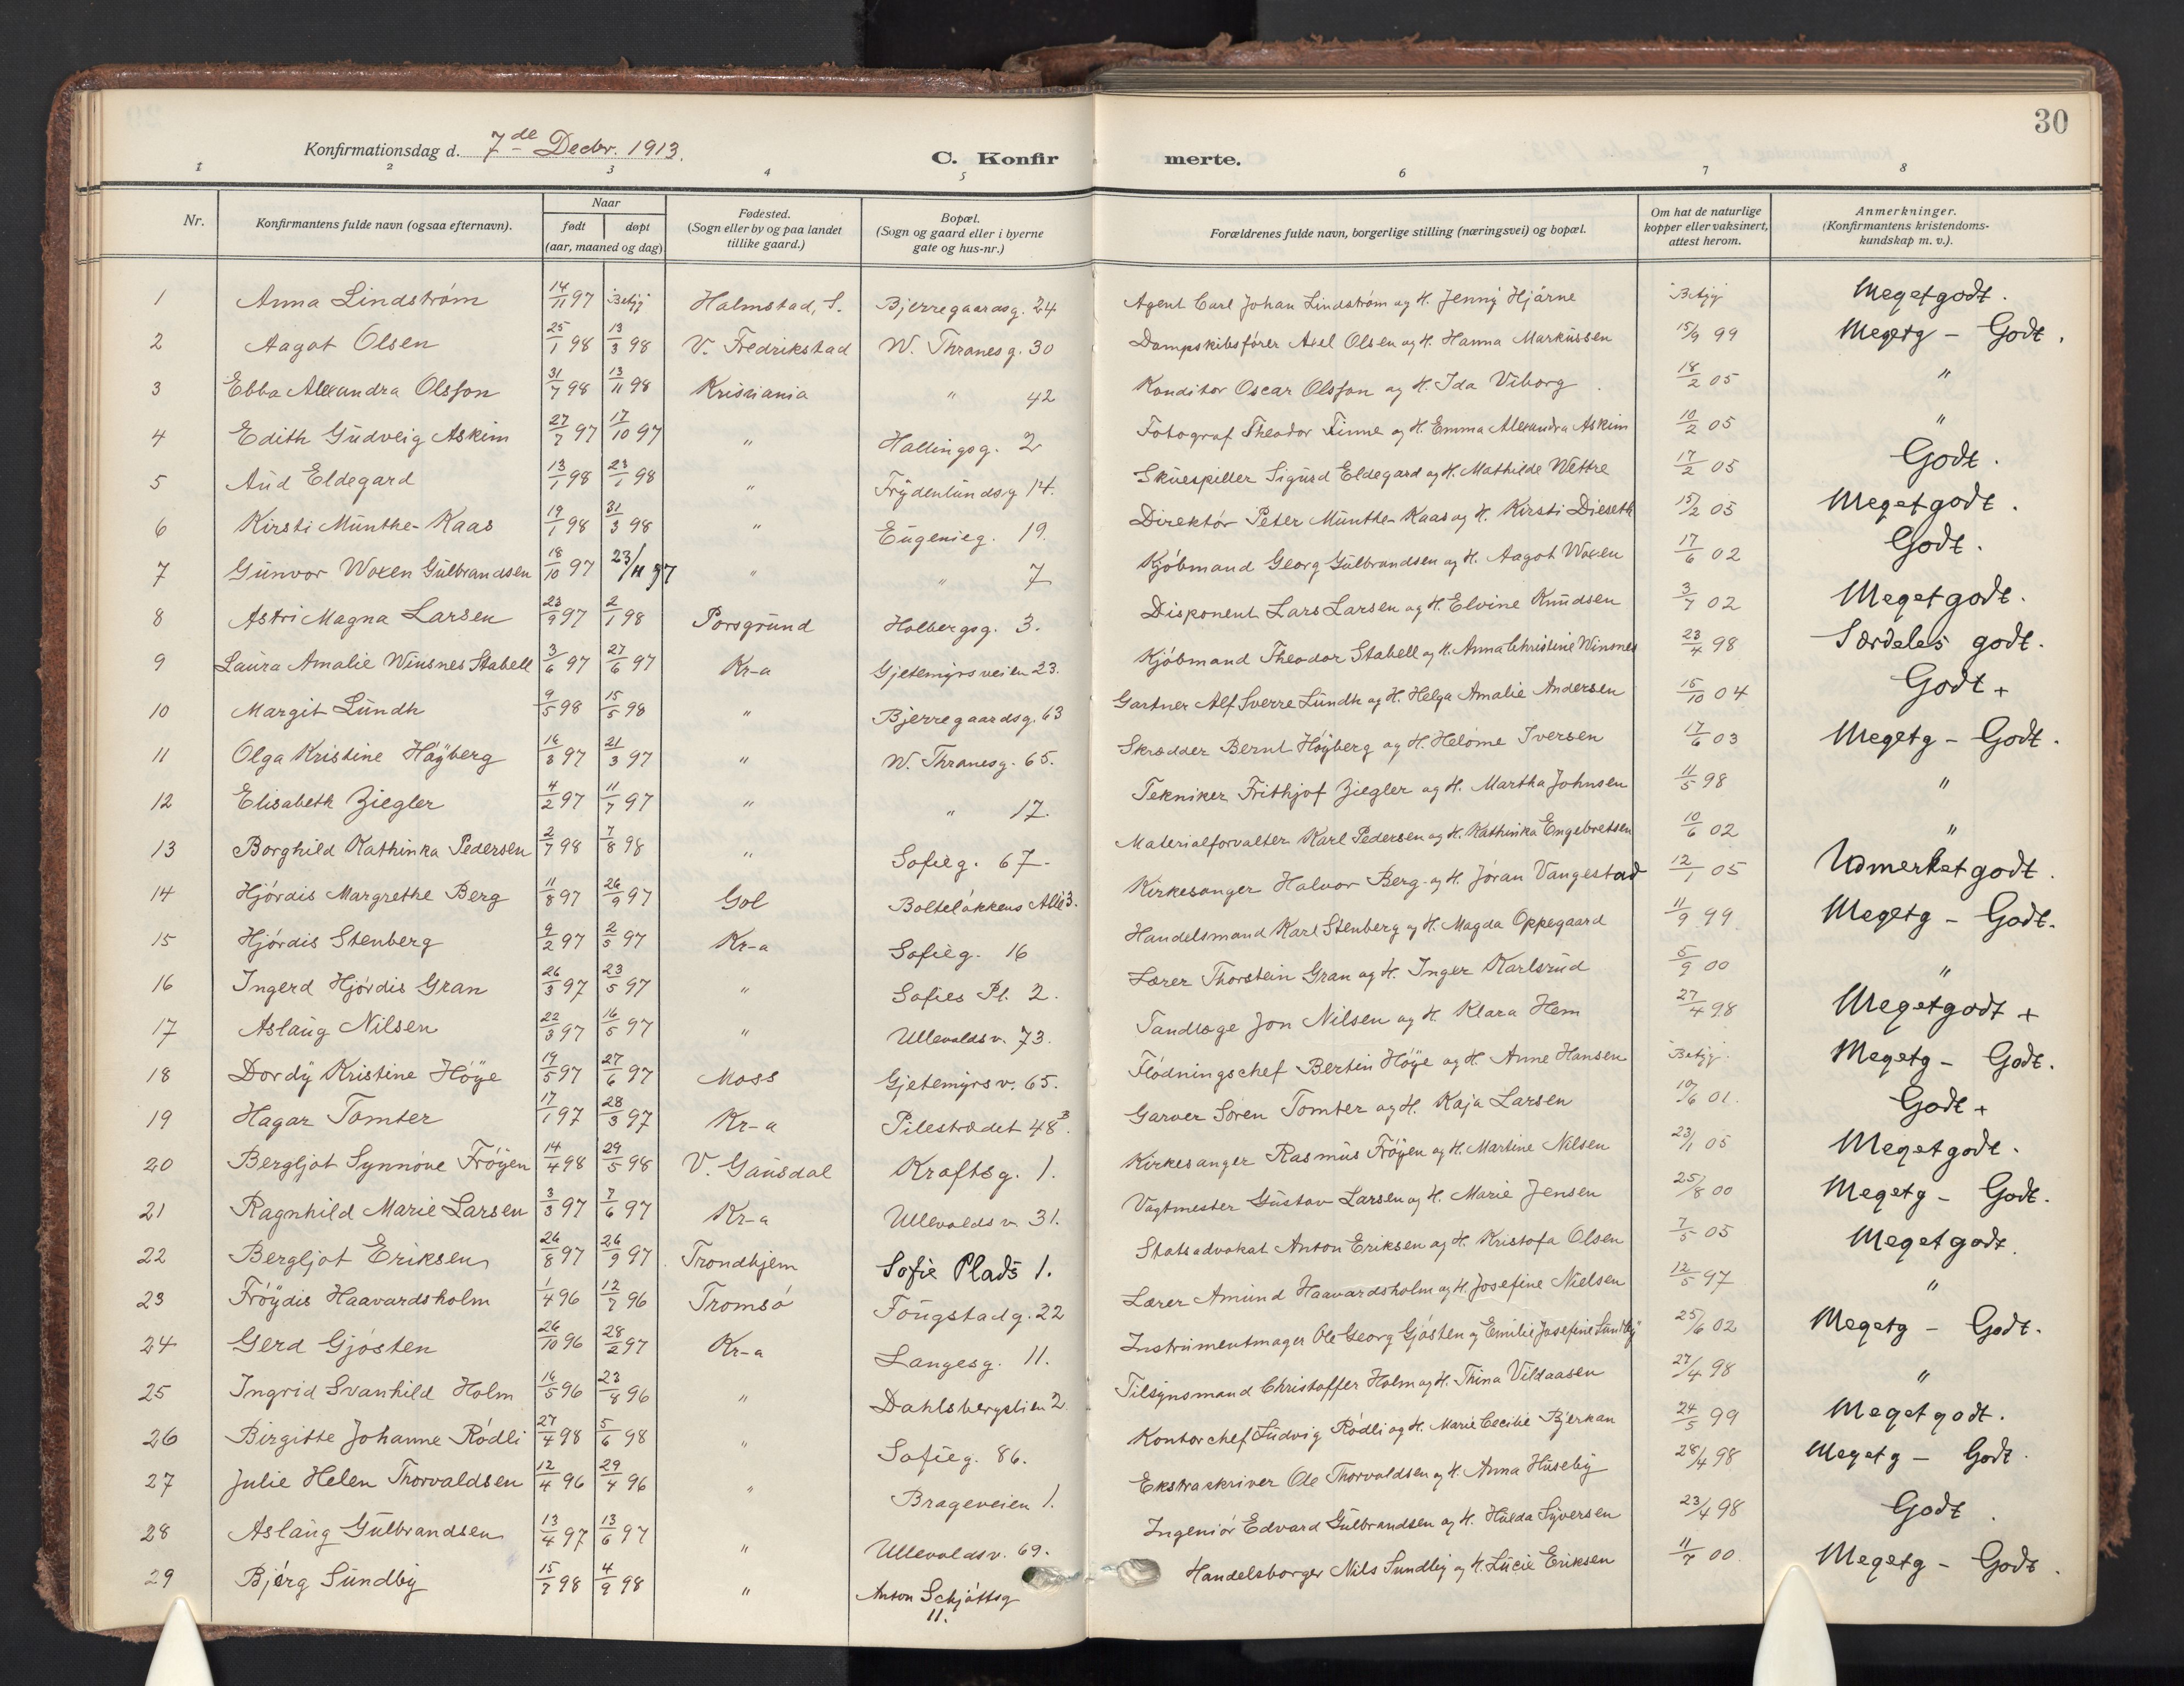 30
Konfirmationsdag d. 7de Decbr. 1913.
C. Konfirmerte.
1 2 3 4 5 6 7 8
Nr. | Konfirmantens fulde navn (ogsaa efternavn). | Naar født døpt (aar, maaned og dag) | Fødested. (Sogn eller by og paa landet tillike gaard.) | Bopæl. (Sogn og gaard eller i byerne gate og hus-nr.) | Forældrenes fulde navn, borgerlige stilling (næringsvei) og bopæl. | Om hat de naturlige kopper eller vaksinert, attest herom. | Anmerkninger. (Konfirmantens kristendoms-kundskap m. v.).
1 Anna Lindstrøm 14/11 97 Betyg Halmstad, S. Bjerregaardsg. 24 Agent Carl Johan Lindstrøm og H. Jenny Hjärne Betyg Megetgodt.
2 Aagot Olsen 25/1 98 13/3 98 V. Fredrikstad W. Thranesg. 30 Dampskibsfører Axel Olsen og H. Hanna Markussen 15/9 99 Megetg - Godt.
3 Ebba Alexandra Olsson 31/7 98 13/11 98 Kristiania " 42 Konditor Oscar Olsson og H. Ida Viborg 18/2 05 "
4 Edith Gudveig Askim 27/7 97 17/10 97 " Hallingsg. 2 Fotograf Theodor Finne og H. Emma Alexandra Askim 10/2 05 "
5 Aud Eldegard 13/1 98 23/1 98 " Frydenlundsg 14. Skuespiller Sigurd Eldegard og H. Mathilde Wettre 17/2 05 Godt.
6 Kirsti Munthe-Kaas 19/1 98 31/3 98 " Eugenieg. 19. Direktör Peter Munthe-Kaas og H. Kirsti Dieseth 15/2 05 Megetgodt.
7 Gunvor Woxen Gulbrandsen 18/10 97 23/11 97 " " 7 Kjöbmand Georg Gulbrandsen og H. Aagot Woxen 17/6 02 Godt.
8 Astri Magna Larsen 23/9 97 2/1 98 Porsgrund Holbergsg. 3. Disponent Lars Larsen og H. Elvine Knudsen 3/7 02 Megetgodt.
9 Laura Amalie Winsnes Stabell 3/6 97 27/6 97 Kr-a Gjetemyrsveien 23. Kjöbmand Theodor Stabell og H. Anna Christine Winsnes 23/4 98 Særdeles godt.
10 Margit Lundh 9/5 98 15/5 98 " Bjerregaardsg. 63 Gartner Alf Sverre Lundh og H. Helga Amalie Andersen 15/10 04 Godt +
11 Olga Kristine Höyberg 16/3 97 21/3 97 " W. Thranesg. 65. Skrædder Bernt Höyberg og H. Helome Iversen 17/6 03 Megetg - Godt.
12 Elisabeth Ziegler 4/2 97 11/7 97 " " 17. Tekniker Frithjof Ziegler og H. Martha Johnsen 11/5 98 "
13 Borghild Kathinka Pedersen 2/7 98 7/8 98 " Sofieg. 67. Materialforvalter Karl Pedersen og H. Kathinka Engebretsen 10/6 02 "
14 Hjördis Margrethe Berg 11/8 97 26/9 97 Gol Bolteløkkens Allé 3. Kirkesanger Halvor Berg og H. Jöran Vangestad 12/1 05 Udmerketgodt.
15 Hjördis Stenberg 9/2 97 2/5 97 Kr-a Sofieg. 16 Handelsmand Karl Stenberg og H. Magda Oppegaard 11/9 99. Megetg - Godt.
16 Ingerd Hjördis Gran 26/3 97 23/5 97 " Sofies Pl. 2. Lærer Thorstein Gran og H. Inger Karlsrud 5/9 00 "
17 Aslaug Nilsen 22/3 97 16/5 97 " Ullevoldsv. 73. Tandlæge Jon Nilsen og H. Klara Hem 27/4 98 Megetgodt +
18 Dordy Kristine Höye 19/5 97 27/6 97 Moss Gjetemyrsv. 65. Flödningschef Bertin Höye og H. Anne Hansen Betyg. Megetg - Godt.
19 Hagar Tomter 17/1 97 28/3 97 Kr-a Pilestrædet 48B. Garver Sören Tomter og H. Kaja Larsen 10/6 01. Godt +
20 Bergljot Synnöve Fröyen 14/4 98 29/5 98 V. Gausdal Kraftsg. 1. Kirkesanger Rasmus Fröyen og H. Martine Nilsen 23/1 05 Megetgodt.
21 Ragnhild Marie Larsen 3/3 97 7/6 97 Kr-a Ullevoldsv. 31. Vagtmester Gustav Larsen og H. Marie Jensen 25/8 00 Megetg - Godt.
22 Bergljot Eriksen 26/8 97 26/9 97 Trondhjem Sofie Plads 1. Statsadvokat Anton Eriksen og H. Kristofa Olsen 7/5 05 Megetgodt.
23 Fröydis Haavardsholm 1/4 96 12/7 96 Tromsö Fougstadg. 22 Lærer Amund Haavardsholm og H. Josefine Nielsen 12/5 97 "
24 Gerd Gjösten 26/10 96 28/2 97 Kr-a Langesg. 11. Instrumentmager Ole Georg Gjösten og Emilie Josefine Sundby 25/6 02 Megetg - Godt.
25 Ingrid Svanhild Holm 16/5 96 23/8 96 " Dahlsbergstien 2 Tilsynsmand Christoffer Holm og H. Thina Vildaasen 27/4 98 "
26 Birgitte Johanne Rödli 27/4 98 5/6 98 " Sofieg. 86. Kontorchef Ludvig Rödli og H. Marie Cecilie Bjerkan 24/5 99 Megetgodt.
27 Julie Helen Thorvaldsen 12/4 96 29/4 96 " Brageveien 1. Ekstraskriver Ole Thorvaldsen og H. Anna Huseby 28/4 98 Megetg - Godt.
28 Aslaug Gulbrandsen 13/4 97 13/6 97 " Ullevoldsv. 69. Ingeniör Edvard Gulbrandsen og H. Hulda Syversen 23/4 98 Godt.
29 Bjørg Sundby 15/7 98 4/9 98 " Anton Schjöttsg 11. Handelsborger Nils Sundby og H. Lucie Eriksen 11/7 00. Megetg - Godt.